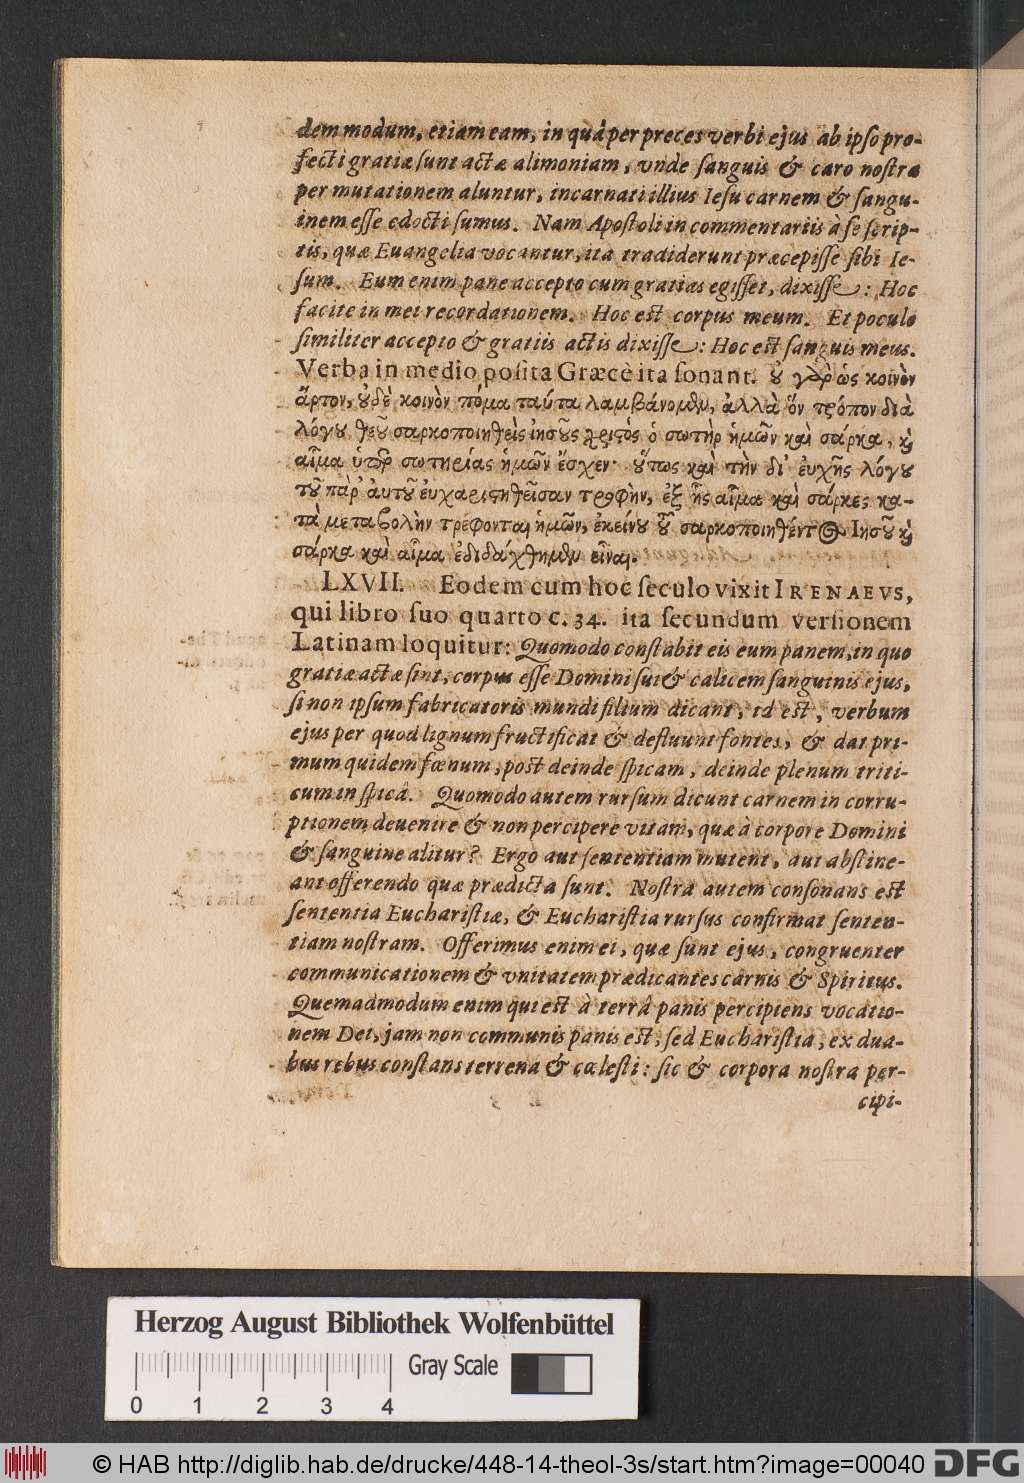 dem modum, etiam eam, in quâ per preces verbi ejus ab ipso pro-
fecti gratiæ sunt actæ alimoniam, vnde sanguis & caro nostra
per mutationem aluntur, incarnati illius Iesu carnem & sangu-
inem esse edocti sumus. Nam Apostoli in commentariis à se scrip-
tis, quæ Euangelia vocantur, ita tradiderunt præcepisse sibi Ie-
sum. Eum enim pane accepto cum gratias egisset, dixisse: Hoc
facite in mei recordationem. Hoc est corpus meum. Et poculo
similiter accepto & gratiis actis dixisse: Hoc est sanguis meus.
Verba in medio posita Græcè ita sonant. ὐ γὰρ ὡς κοινὸν
ἄρτον, ὐδὲ κοινὸν πόμα ταύτα λαμβάνομεν, ἀλλὰ ὃν τρόπον διὰ
λόγου θεοῦ σαρκοποιηθεὶς ἰησοῦς χριστὸς ὁ σωτὴρ ἡμῶν καὶ σάρκα, καὶ
αἷμα ὑπὲρ σωτηρίας ἡμῶν ἔσχεν· ὕτως καὶ τὴν δι' ἐυχῆς λόγου
τοῦ πὰρ' ἀυτοῦ ἐυχαριστηθεῖσαν τροφὴν, ἐξ ἧς αἷμα καὶ σάρκες κα-
τὰ μεταβολὴν τρέφονται ἡμῶν, ἐκείνου τοῦ σαρκοποιηθέντος Ιησοῦ καὶ
σάρκα καὶ αἷμα ἐδιδάχθημεν εἶναι.
LXVII. Eodem cum hoc seculo vixit IRENAEVS,
qui libro suo quarto c. 34. ita secundum versionem
Latinam loquitur: Quomodo constabit eis eum panem, in quo
gratiæ actæ sint, corpus esse Domini sui & calicem sanguinis ejus,
si non ipsum fabricatoris mundi filium dicant, id est, verbum
ejus per quod lignum fructificat & defluunt fontes, & dat pri-
mum quidem fœnum, post deinde spicam, deinde plenum triti-
cum in spicâ. Quomodo autem rursum dicunt carnem in corru-
ptionem deuenire & non percipere vitam, quæ à corpore Domini
& sanguine alitur? Ergo aut sententiam mutent, aut abstine-
ant offerendo quæ prædicta sunt. Nostra autem consonans est
sententia Eucharistiæ, & Eucharistia rursus confirmat senten-
tiam nostram. Offerimus enim ei, quæ sunt ejus, congruenter
communicationem & vnitatem prædicantes carnis & Spiritus.
Quemadmodum enim qui est à terrâ panis percipiens vocatio-
nem Dei, jam non communis panis est, sed Eucharistia, ex dua-
bus rebus constans terrena & cœlesti: sic & corpora nostra per-
cipi-
Herzog August Bibliothek Wolfenbüttel
Gray Scale
0 1 2 3 4
© HAB http://diglib.hab.de/drucke/448-14-theol-3s/start.htm?image=00040
DFG